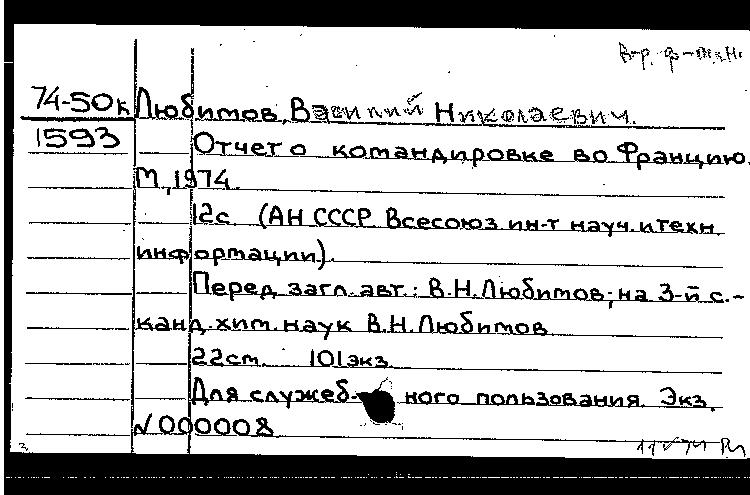 74-50к Любимов, Василий Николаевич.
1593 Отчет о командировке во Францию.
М., 1974.
12с. (АН СССР Всесоюз. ин-т науч. и техн.
информации).
Перед загл. авт.: В.Н.Любимов; на 3-й с.-
канд. хим. наук В.Н.Любимов
22см. 101экз.
Для служеб- ного пользования. Экз.
№000008